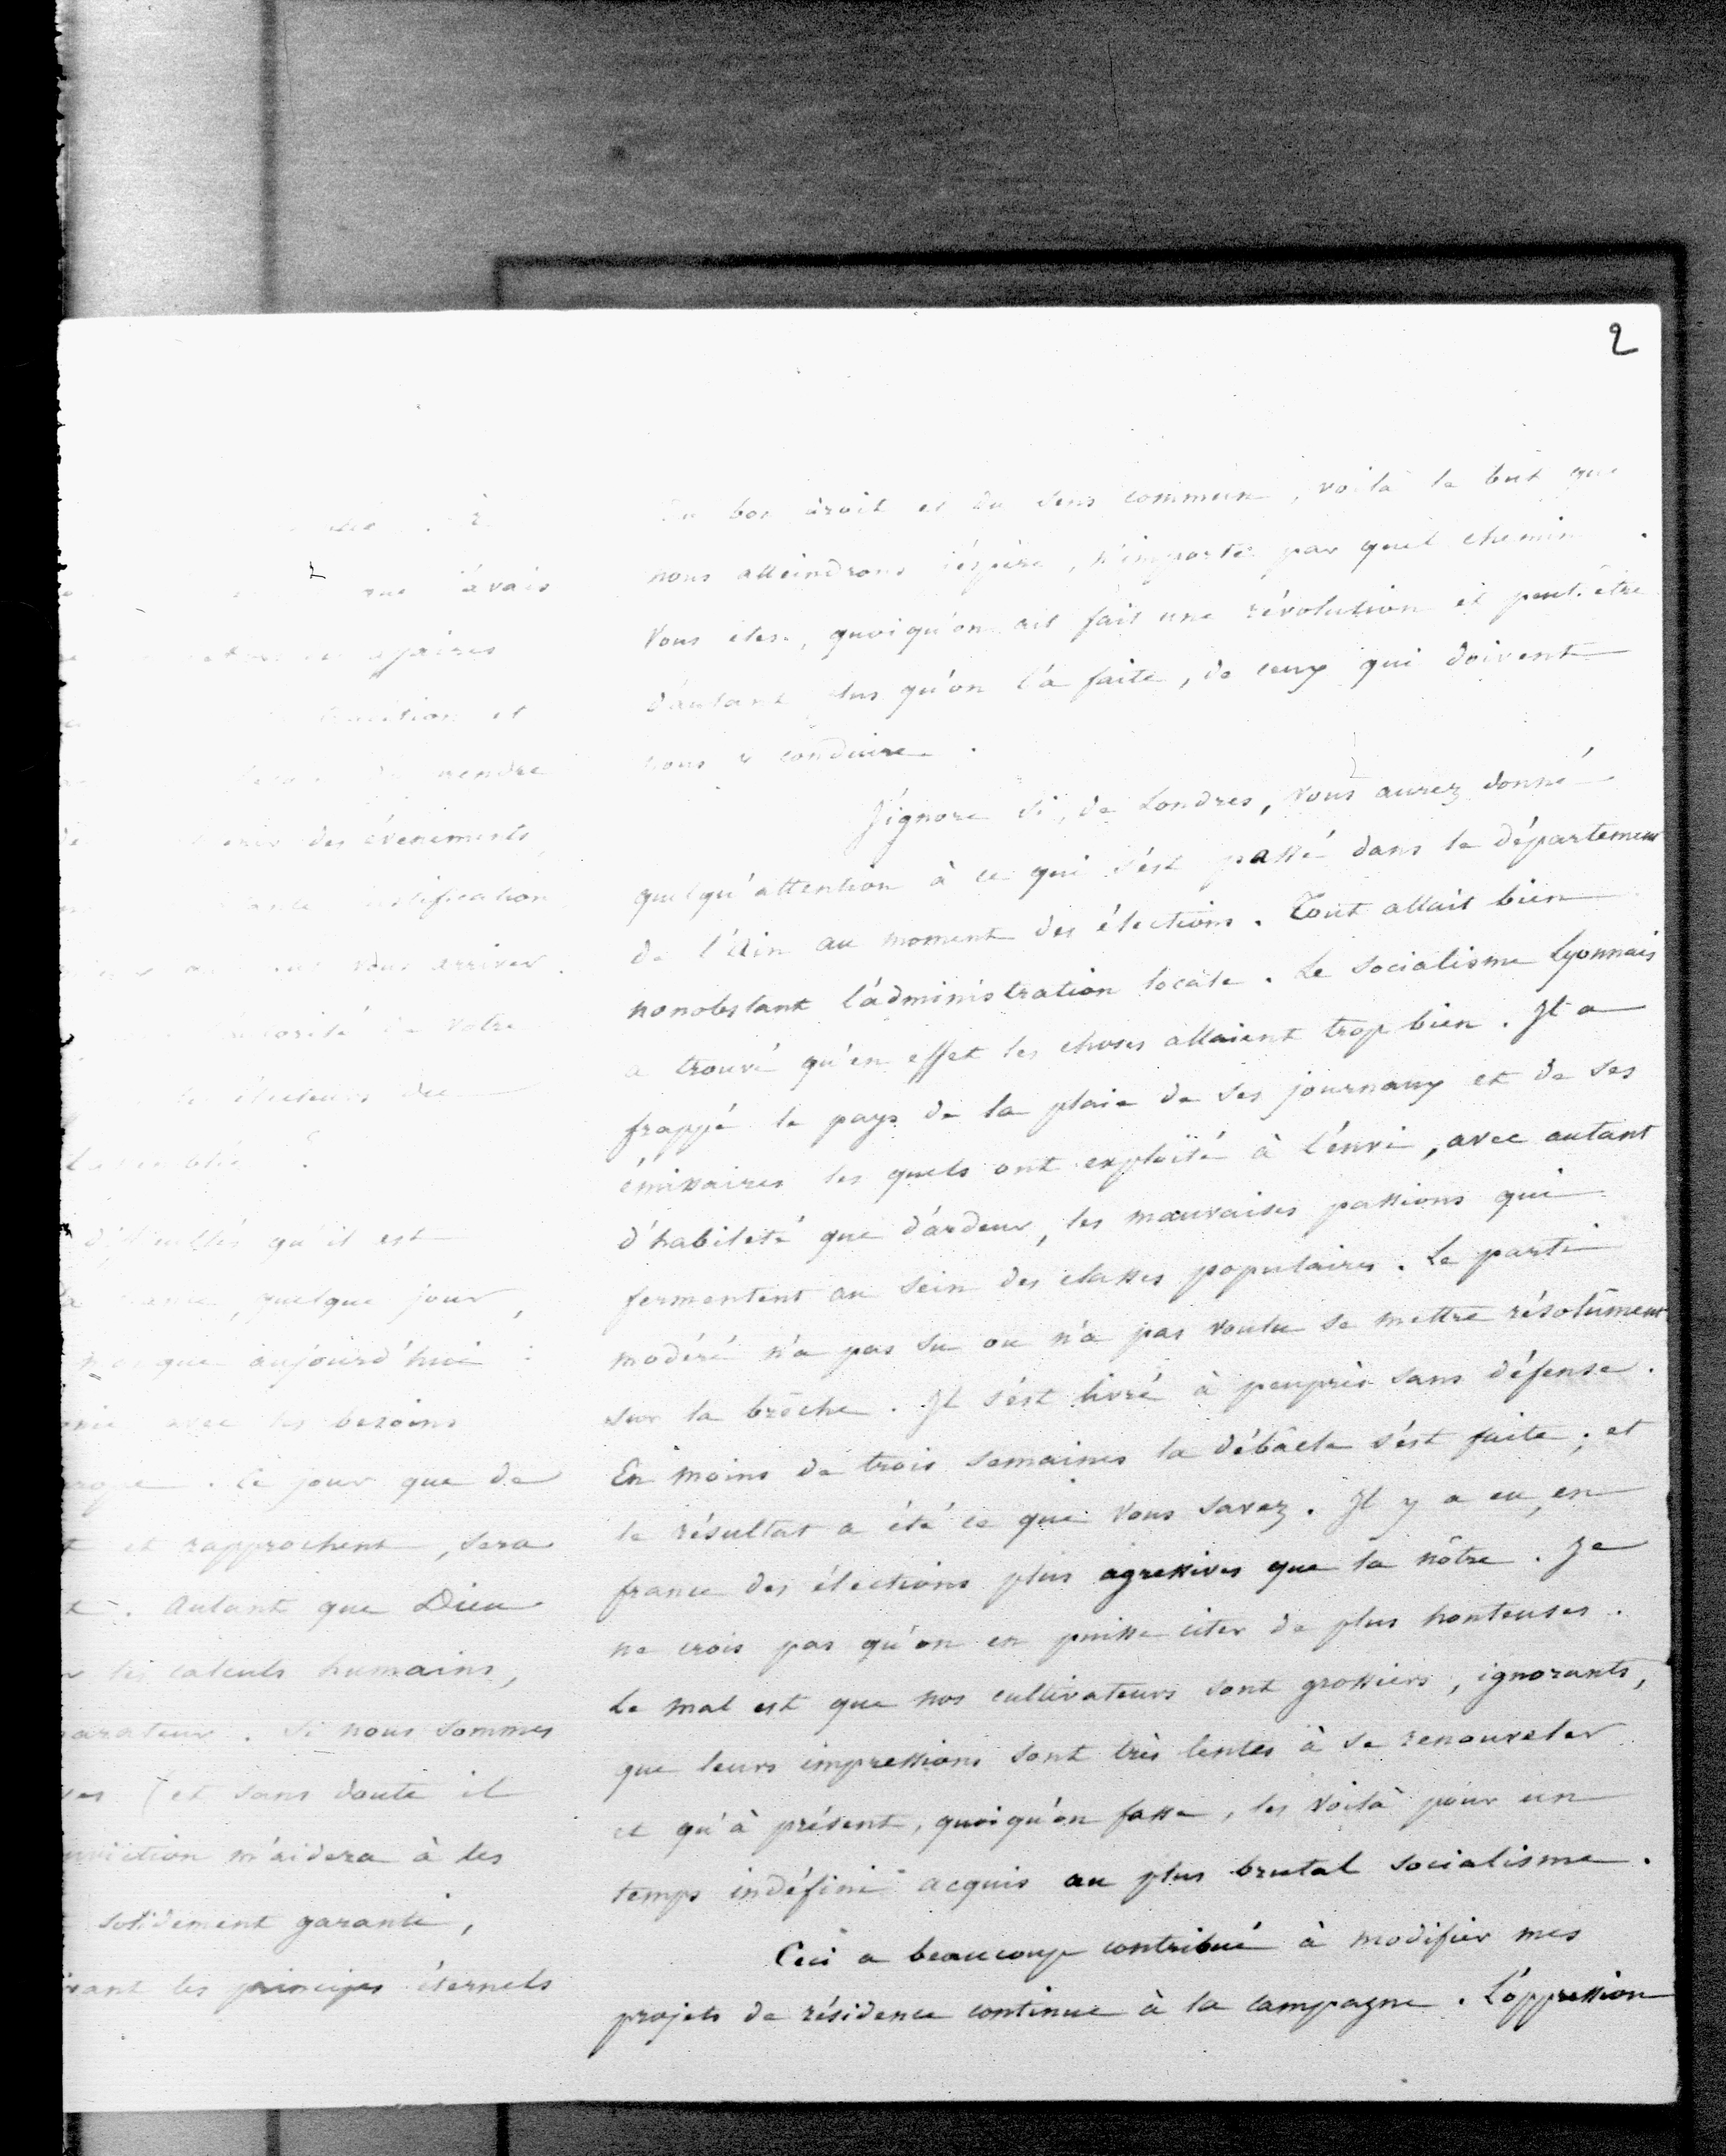 2
avais
affaires
et
rendre
des évenements
justification
vous arriver.
de votre
électeurs du
qu'il est
quelque jour,
que aujourd'hui :
avec les besoins
. Ce jour que de
et rapprochent, sera
. Autant que Dieu
les calculs humains,
. Si nous sommes
(et sans doute il
m'aidera à les
solidement garanti,
les principes éternels
du bon droit et du sens commun, voilà le but que
nous atteindrons j'espère, n'importe par quel chemin.
Vous êtes, quoiqu'on ait fait une révolution et peut-être
d'autant plus qu'on l'a faite, de ceux qui doivent
nous y conduire.
J'ignore si, de Londres, vous aurez donné
quelqu'attention à ce qui s'est passé dans le département
de l'Ain au moment des élections. Tout allait bien
nonobstant l'administration locale. Le socialisme Lyonnais
a trouvé qu'en effet les choses allaient trop bien. Il a
frappé le pays de la plaie de ses journaux et de ses
émissaires les quels ont exploité à l'envi, avec autant
d'habileté que d'ardeur, les mauvaises passions qui
fermentent au sein des classes populaires. Le parti
modéré n'a pas su ou n'a pas voulu se mettre résolûment
sur la brêche. Il s'est livré à peuprès sans défense.
En moins de trois semaines la débâcle s'est faite; et
le résultat a été ce que vous savez. Il y a eu, en
france des élections plus agressives que la nôtre. Je
ne crois pas qu'on en puisse citer de plus honteuses.
Le mal est que nos cultivateurs sont grossiers, ignorants,
que leurs impressions sont très lentes à se renouveler
et qu'à présent, quoiqu'on fasse, les voilà pour un
temps indéfini acquis au plus brutal socialisme.
Ceci a beaucoup contribué à modifier mes
projets de résidence continue à la campagne. L'oppression